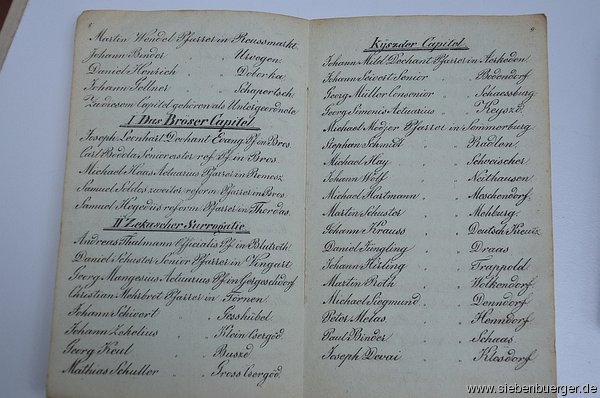 8
Martin Wendel Pfarrer in Reussmarkt.
Johann Binder " Urwegen.
Daniel Henrich " Doborka
Johann Gellner " Schaportsch.
Zu diesem Capitel gehören als Untergeordnete
I Das Broser Capitel.
Joseph Leonhart Dechant Evang. Pf. in Bros.
Carl Bodola Senor erster ref. Pf. in Bros.
Michael Haas Actuarius Pfarrer in Romosz
Samuel zweiter reform. Pfarrer in Bros.
Samuel Hegedüs reform. Pfarrer in Therdas.
II Zekascher Surrogatie.
Andreas Thalmann Officialis Pf. in Blutroth
Daniel Schuster Senior Pfarrer in Wingart.
Georg Mangesius Actuarius Pf. in Gergeschdorf
Christian Mohrbrot Pfarrer in Törnen.
Johann Schivert " Gesshübel
Johann Zekelius " Klein Csergöd.
Georg Keul " Buszd.
Mathias Schuller " Gross Csergöd.
9
Kyszder Capitel.
Johann Mild Dechant Pfarrer in Arkeden.
Johann Seivert Senior " Bodendorf
Georg Müller Consenior " Schaessburg
Georg Simonis Actuarius " Keyszd.
Michael Medjer Pfarrer in Sommerburg.
Stephan Schmidt " Radlen.
Michael Hay " Schweischer
Johann Wolf " Neithausen
Michael Hartmann " Meschendorf.
Martin Schuster " Mehburg.
Johann Krauss " Deutsch Kreutz.
Daniel Jüngling " Draas
Johann Hirling " Trappold
Martin Roth " Wolkendorf
Michael Siegmund " Denndorf
Peter Melas " Henndorf
Paul Binder " Schaas
Joseph Devai " Klosdorf
www.siebenbuerger.de